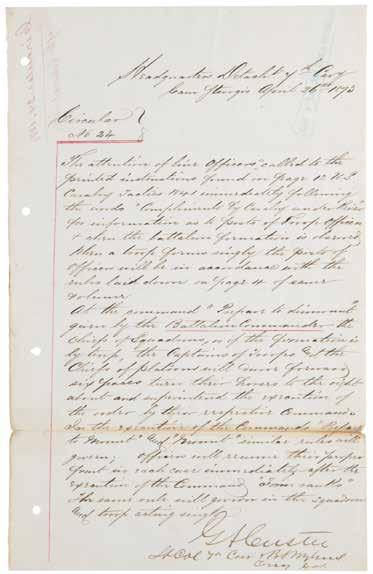 Headquarters Detacht 7th Cavy
Camp Sturgis April 26th 1873
Circular
No 24
The attention of line officers called to the
printed instructions found on page 12 U.S.
Cavalry Tactics immediately following
the words
for information as to posts of Troop Officers
when the battalion formation is
When a troop forms singly the posts of
officers will be in accordance with the
rules laid down on page 4 of same
volume
At the command "Prepare to dismount"
given by the Battalion Commander the
Chiefs of Squadrons, or if the formation is
by troop, the Captains of troops and the
Chiefs of platoons will move forward
six paces turn their horses to the
about and superintend the execution of
the order by their respective Commands
In the execution of the Commands "Prepare
to Mount" and "Mount" similar rules will
govern; officers will resume their proper
post in each case immediately after the
execution of the Command "Form ranks"
The same rule will govern in the squadron
and troop acting singly
G A Custer
Lt Col 7th Cav